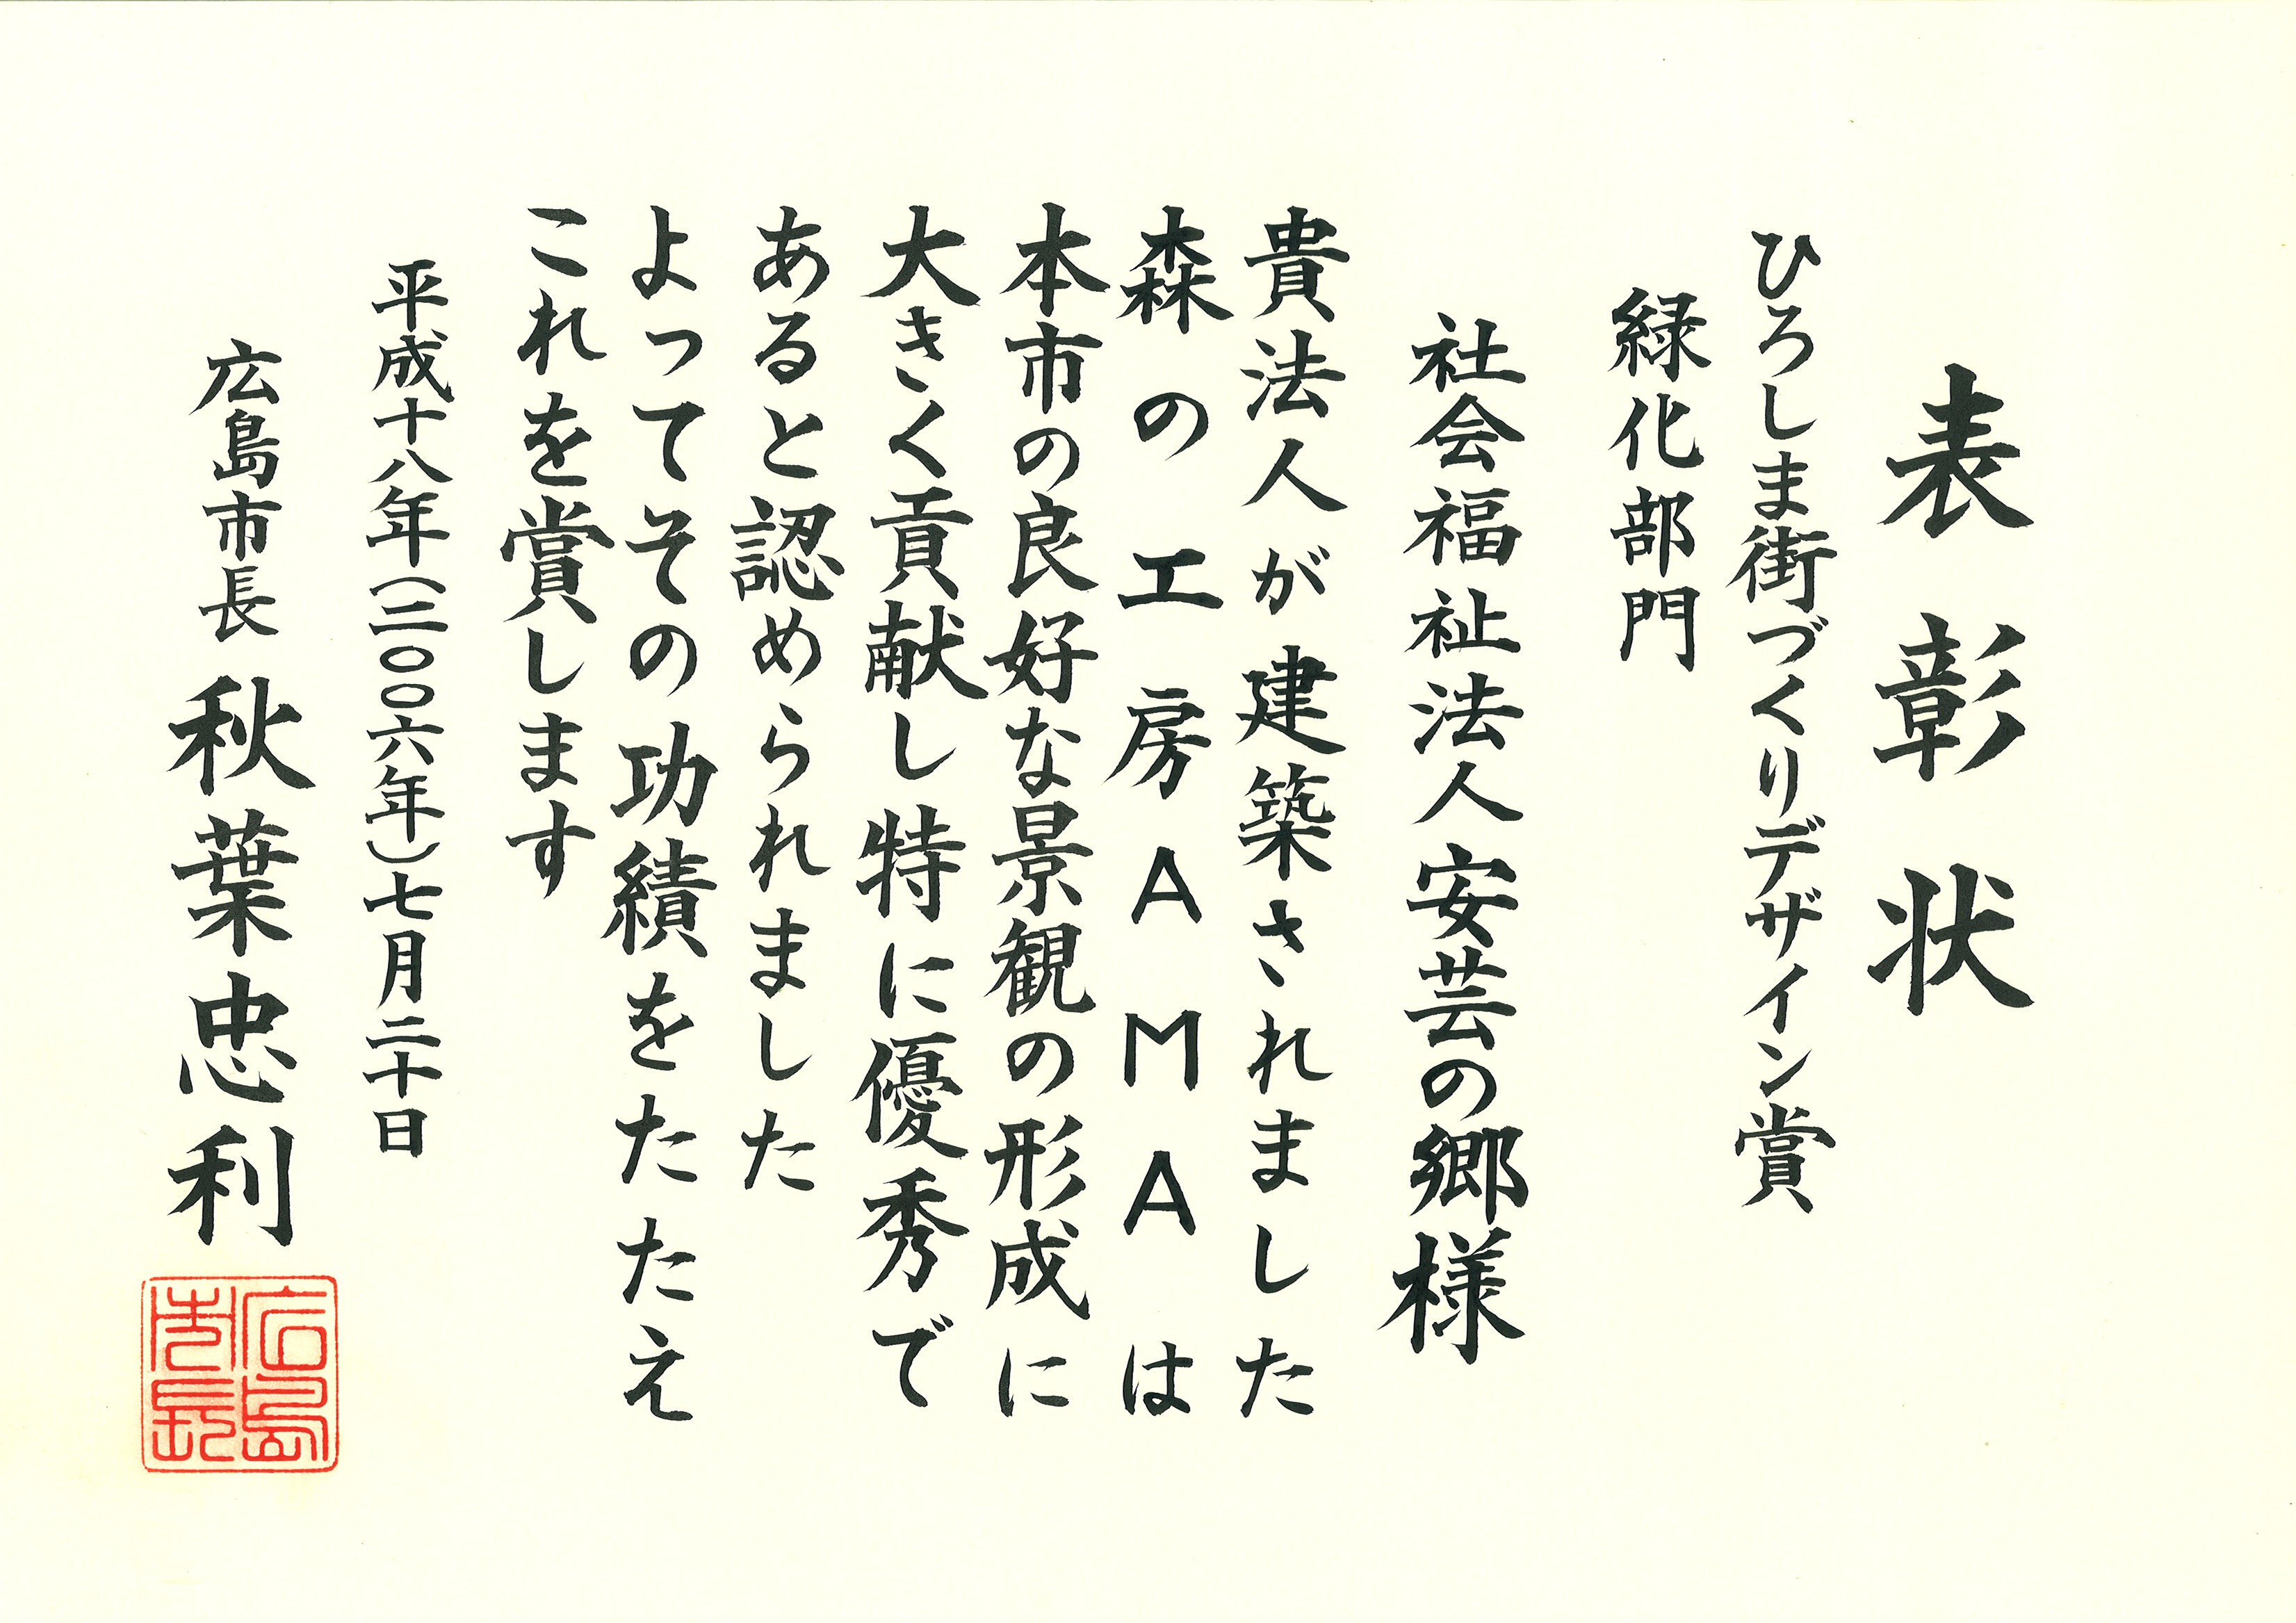 表彰状
ひろしま街づくりデザイン賞
緑化部門
社会福祉法人安芸の郷様
貴法人が建築されました
森の工房AMAは
本市の良好な景観の形成に
大きく貢献し特に優秀で
あると認められました
よってその功績をたたえ
これを賞します
平成十八年(二〇〇六年)七月二十日
広島市長 秋葉忠利
広島
市長